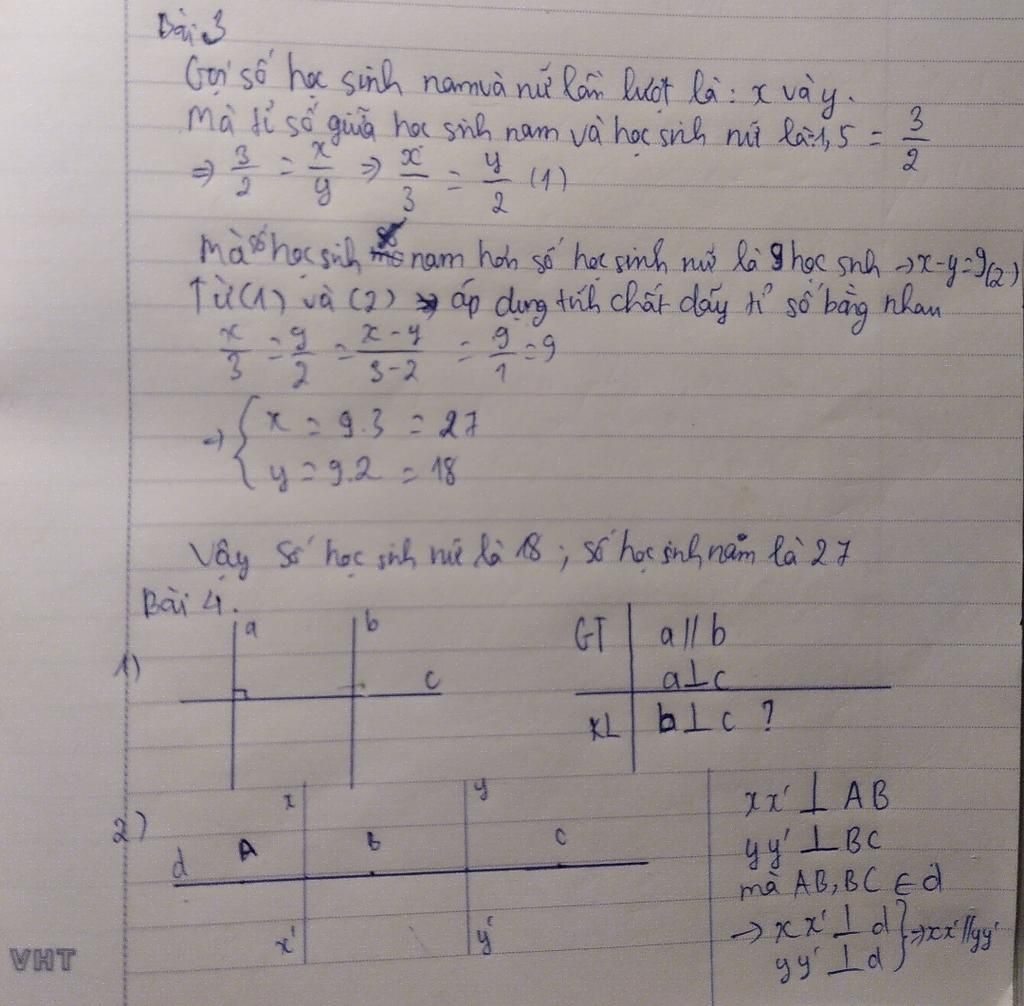 Bài 3
Gọi số học sinh nam và nữ lần lượt là: x và y.
Mà tỉ số giữa học sinh nam và học sinh nữ là: 1,5 = 3/2
⇒ 3/2 = x/y ⇒ x/3 = y/2 (1)
Mà số học sinh nam hơn số học sinh nữ là 9 học snh → x-y=9 (2)
Từ (1) và (2) → áp dụng tính chất dãy tỉ số bằng nhau
x/3 = y/2 = x-y/3-2 = 9/1 = 9
⇒ { x = 9.3 = 27
y = 9.2 = 18
Vậy số học sinh nữ là 18 ; số học sinh nam là 27
Bài 4.
1)
a
b
c
GT
a // b
a ⊥ c
KL
b ⊥ c ?
2)
x
y
d
A
B
C
x'
y'
xx' ⊥ AB
yy' ⊥ BC
mà AB, BC ∈ d
→ xx' ⊥ d } ⇒ xx' // yy'
yy' ⊥ d
VHT